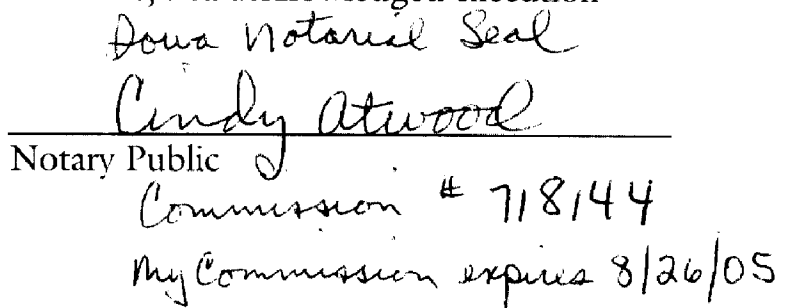 Iowa Notarial Seal
Cindy Atwood
Notary Public
Commission # 718144
My Commission expires 8/26/05